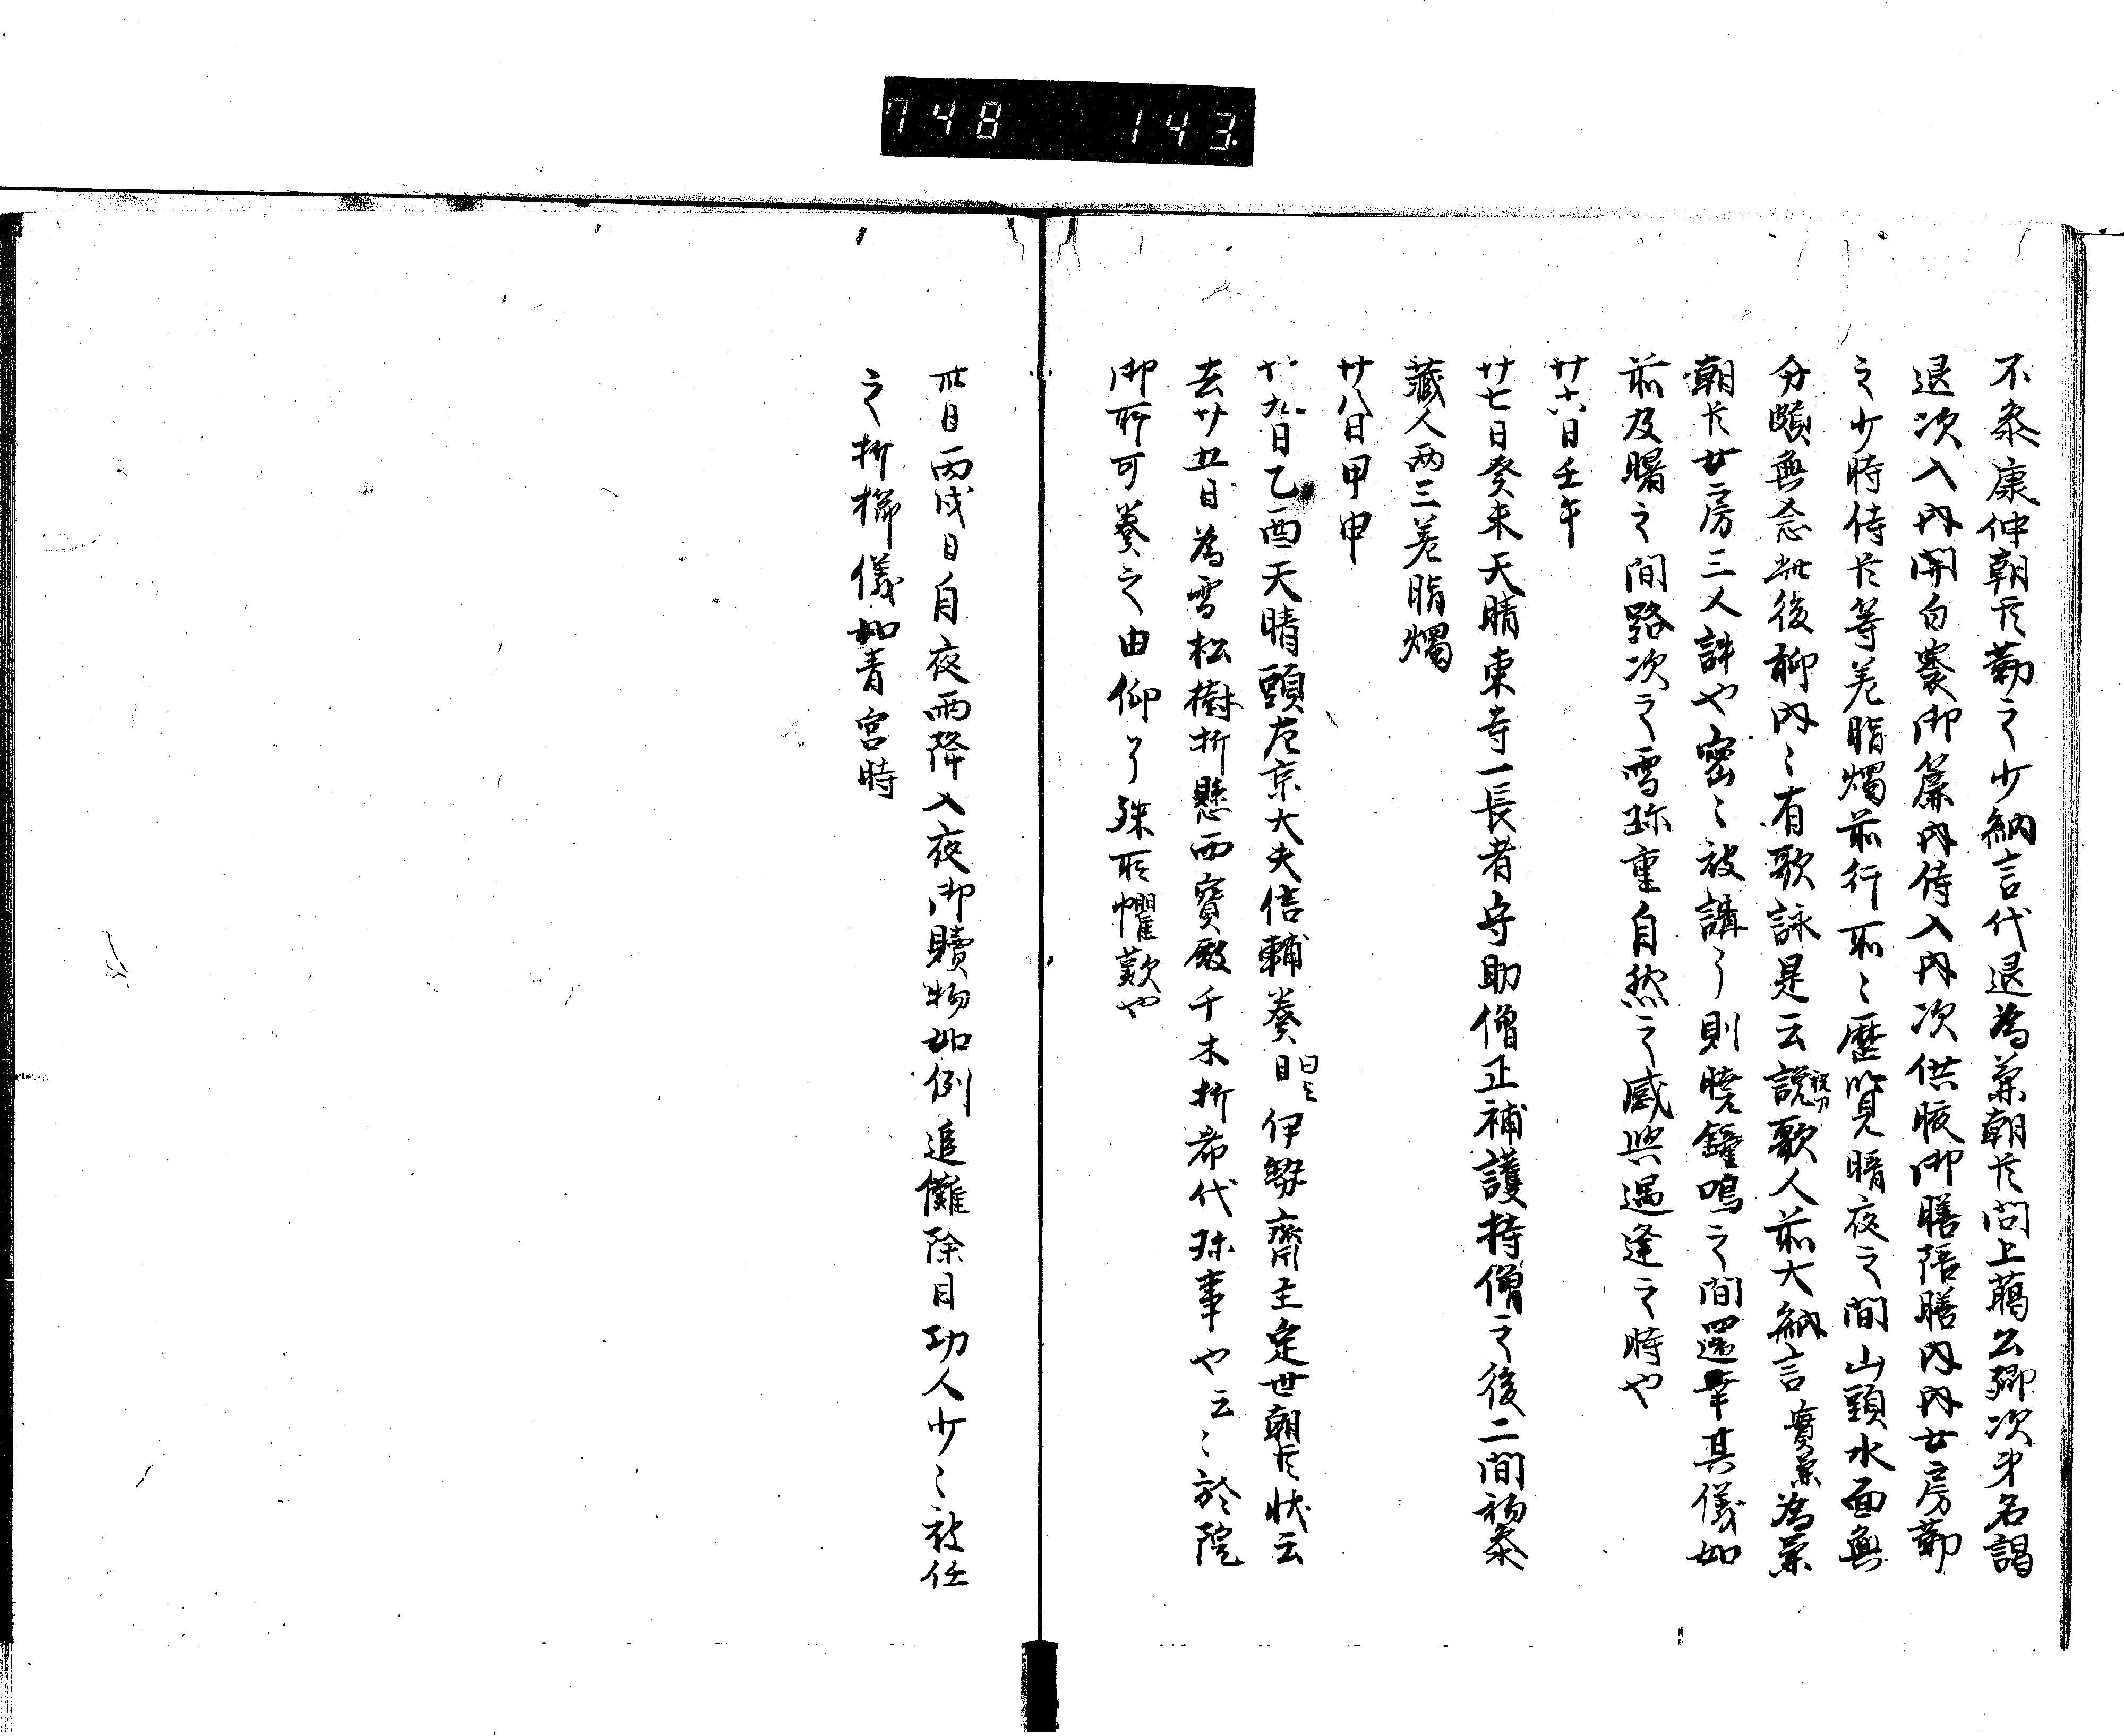 748 143.
不参康仲朝臣勤之少納言代退為兼朝臣問上﨟公卿次第名謁
退次入内関白褰御簾内侍入内次供腋御膳陪膳内内女房勤
之少時侍臣等差脂燭前行所々歴覧暗夜之間山頭水面無
分頗無念此後御内々有歌詠是云説歌人前大納言實兼為兼
朝臣女房三人許也密々被講了則暁鐘鳴之間還幸其儀如
前及曙之間路次之雪弥重自然之感興遇逢之時也
廿六日壬午
廿七日癸未天晴東寺一長者守助僧正補護持僧之後二間初参
蔵人両三差脂燭
廿八日甲申
廿九日乙酉天晴頭左京大夫信輔奏目曰云伊勢齋主定世朝臣状云
去廿五日為雪松樹折懸西寶殿千木折希代珎事也云々於院
御所可奏之由仰了殊所懼歎也
卅日丙戌日自夜雨降入夜御贖物如例追儺除目功人少々被任
之折櫛儀如青宮時